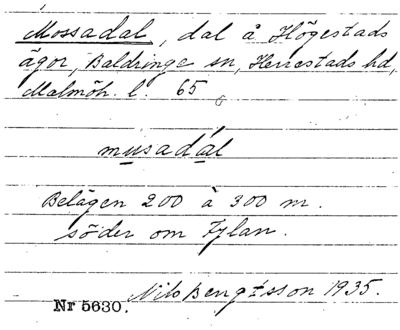 Mossadal, dal å Högestads
ägor, Baldringe sn, Herrestads hd,
Malmöh. l. 65
musadál
Belägen 200 à 300 m.
söder om Fylan.
Nils Bengtsson 1935.
Nr 5630.